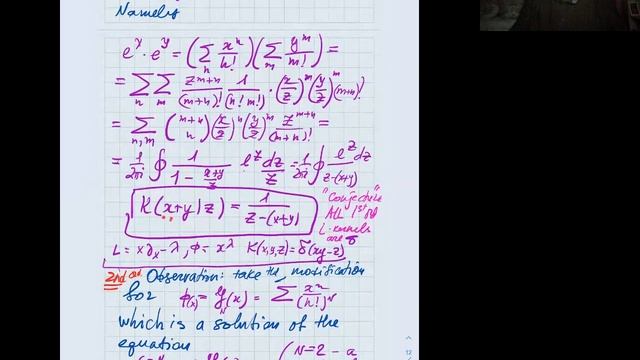 Namely
e^x · e^y = (∑_n x^n/n!)(∑_m y^m/m!) =
= ∑_n ∑_m z^{m+n}/(m+n)! 1/(n!m!) · (x/z)^n (y/z)^m (m+n)!
= ∑_{n,m} (m+n n)(x/z)^n (y/z)^m z^{m+n}/(m+n)! =
= 1/2πi ∮ 1/(1 - (x+y)/z) · e^z dz/z = 1/2πi ∮ e^z dz/(z-(x+y))
K(x+y|z) = 1/(z-(x+y))
"Conjecture"
All 1st
L-kernels
are δ
L = x∂_x - λ, Φ = x^λ K(x,y,z) = δ(xy-z)
2nd Observation: take the modification
for Φ(x) = (x) = ∑ x^n/(n!)^N
which is a solution of the
equation
(N=2 - a